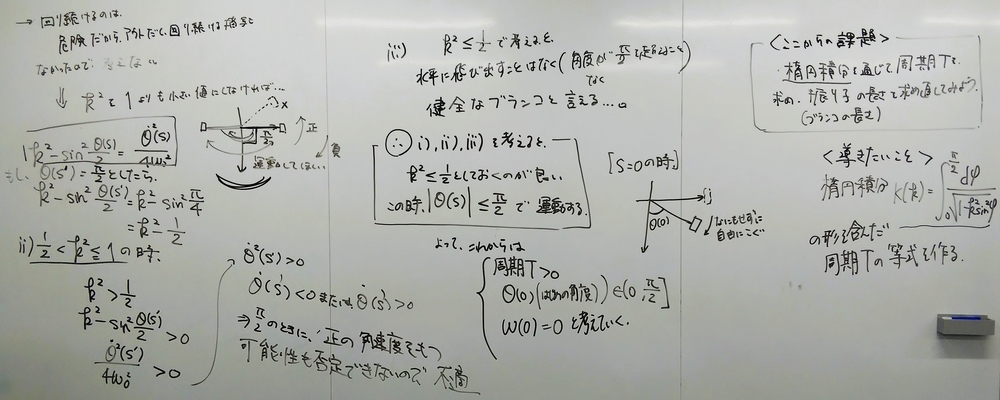 → 回り続けるのは、
危険だから、アウトだし、回り続ける
なかったので 考えない
⇓ k² を 1 よりも小さい値にしなければ…
k² - sin² θ(s)/2 = θ̇²(s)/4ω₀²
もし、θ(s') = π/2 としたら、
k² - sin² θ(s')/2 = k² - sin² π/4
= k² - 1/2
ii) 1/2 < k² ≦ 1 の時、
k² > 1/2
k² - sin² θ(s')/2 > 0
θ̇²(s')/4ω₀² > 0
x
π/2
正
負
運動してほしい
θ̇²(s') > 0
θ̇(s') < 0 または θ̇(s') > 0
⇒ π/2 のときに、正の角速度をもつ
可能性も否定できないので 不適
iii) k² ≦ 1/2 で考えると、
水平に飛び出すことはなく(角度が π/2 を超えることなく)
健全なブランコと言える…。
∴ i), ii), iii) を考えると、
k² ≦ 1/2 としておくのが良い
この時、|θ(s)| ≦ π/2 で 運動する。
よって、これからは
周期T > 0
θ(0) (はじめの角度) ∈ (0, π/2]
ω(0) = 0 と考えていく。
[S=0の時]
θ(0)
なにもせずに
自由にこぐ
<ここからの課題>
楕円積分を通じて、周期Tを
求め、振り子の長さを求め直してみよう。
(ブランコの長さ)
<導きたいこと>
楕円積分 K(k) = ∫₀^{π/2} dφ/√(1-k²sin²φ)
の形を含んだ
周期Tの等式を作る。